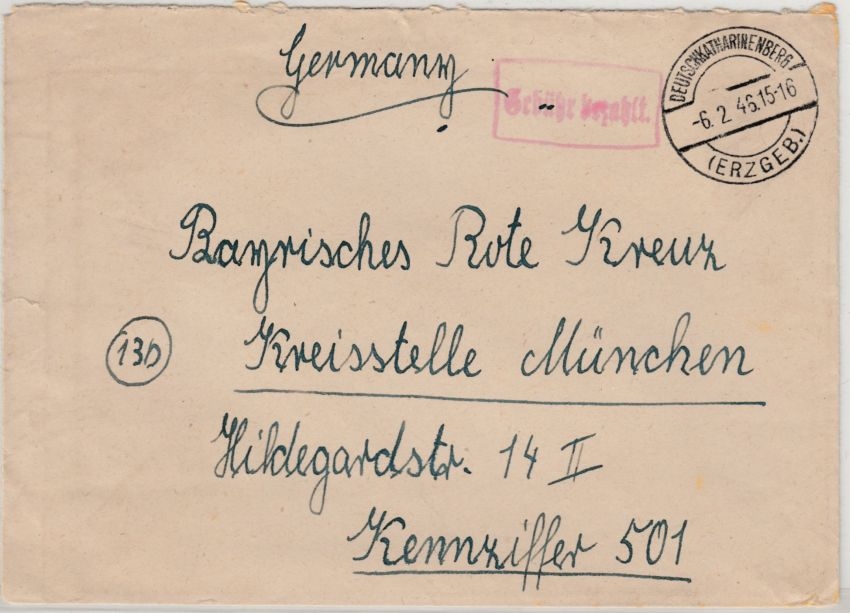 Germany
Gebühr bezahlt.
DEUTSCHKATHARINENBERG
-6. 2. 46.15-16
(ERZGEB.)
Bayrisches Rote Kreuz
13b
Kreisstelle München
Hildegardstr. 14 II
Kennziffer 501